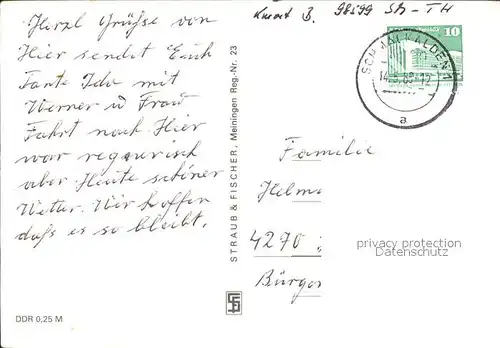 Herzl Grüße von
Hier sendet Euch
Tante Ida mit
Werner u Frau
Fahrt nach Hier
war regnerisch
aber Heute schöner
Wetter. Wir hoffen
daß es so bleibt.
DDR 0,25 M
STRAUB & FISCHER, Meiningen Reg.-Nr. 23
98599 SM-TH
10
SCHMALKALDEN 1
a
Familie
Helm
4270
Bürge
privacy protection
Datenschutz